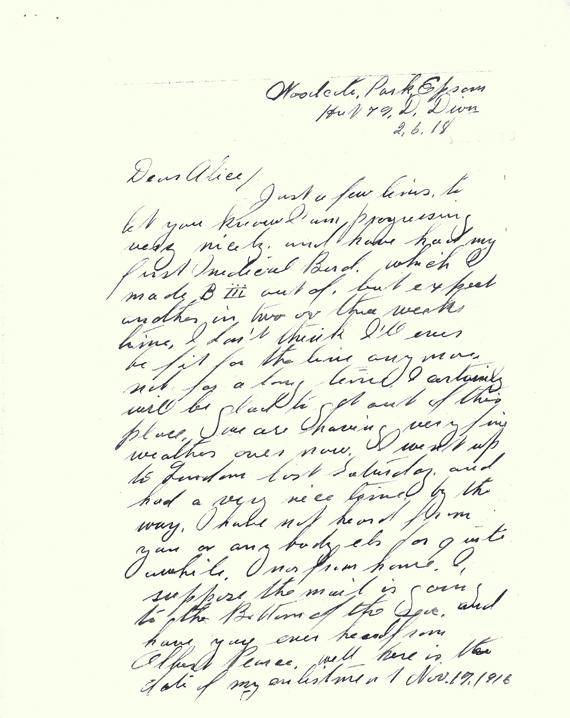 Woodcote, Park, Epsom
Hut 79, D. Divn
2.6.18
Dear Alice/
Just a few lines, to
let you know I am progressing
very nicely. and have had my
first medical Bord. which I
made B III out of, but expect
another in two or three weeks
time, I don't think I'll ever
be fit for the line any more
not for a long time I certainly
will be glad to get out of this
place, we are having very fine
weather over now, I went up
to London last Saturday, and
had a very nice time, by the
way, I have not heard from
you or any body els for quite
awhile, nor from home. I,
suppose the mail is going
to the Bottom of the Sea. and
have you ever heard from
Albert Pearce, well here is the
date of my enlistment Nov.17,1916